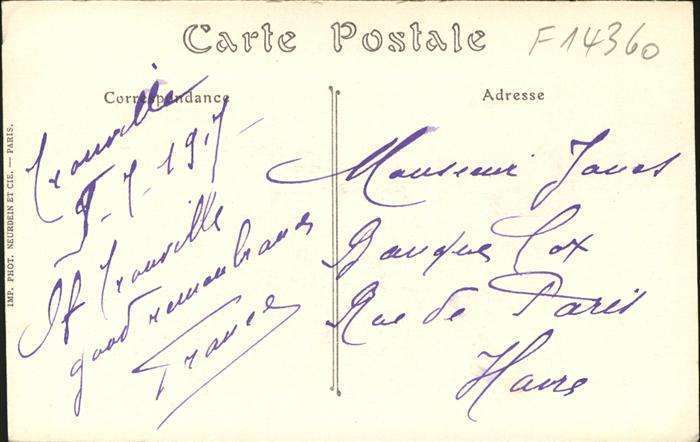 Carte Postale
F14360
Correspondance
Adresse
IMP. PHOT. NEURDEIN ET CIE. — PARIS.
Trouville
5-7-1917
Of Trouville
good remembrance
France
Monsieur
Banque Cox
Rue de Paris
Havre